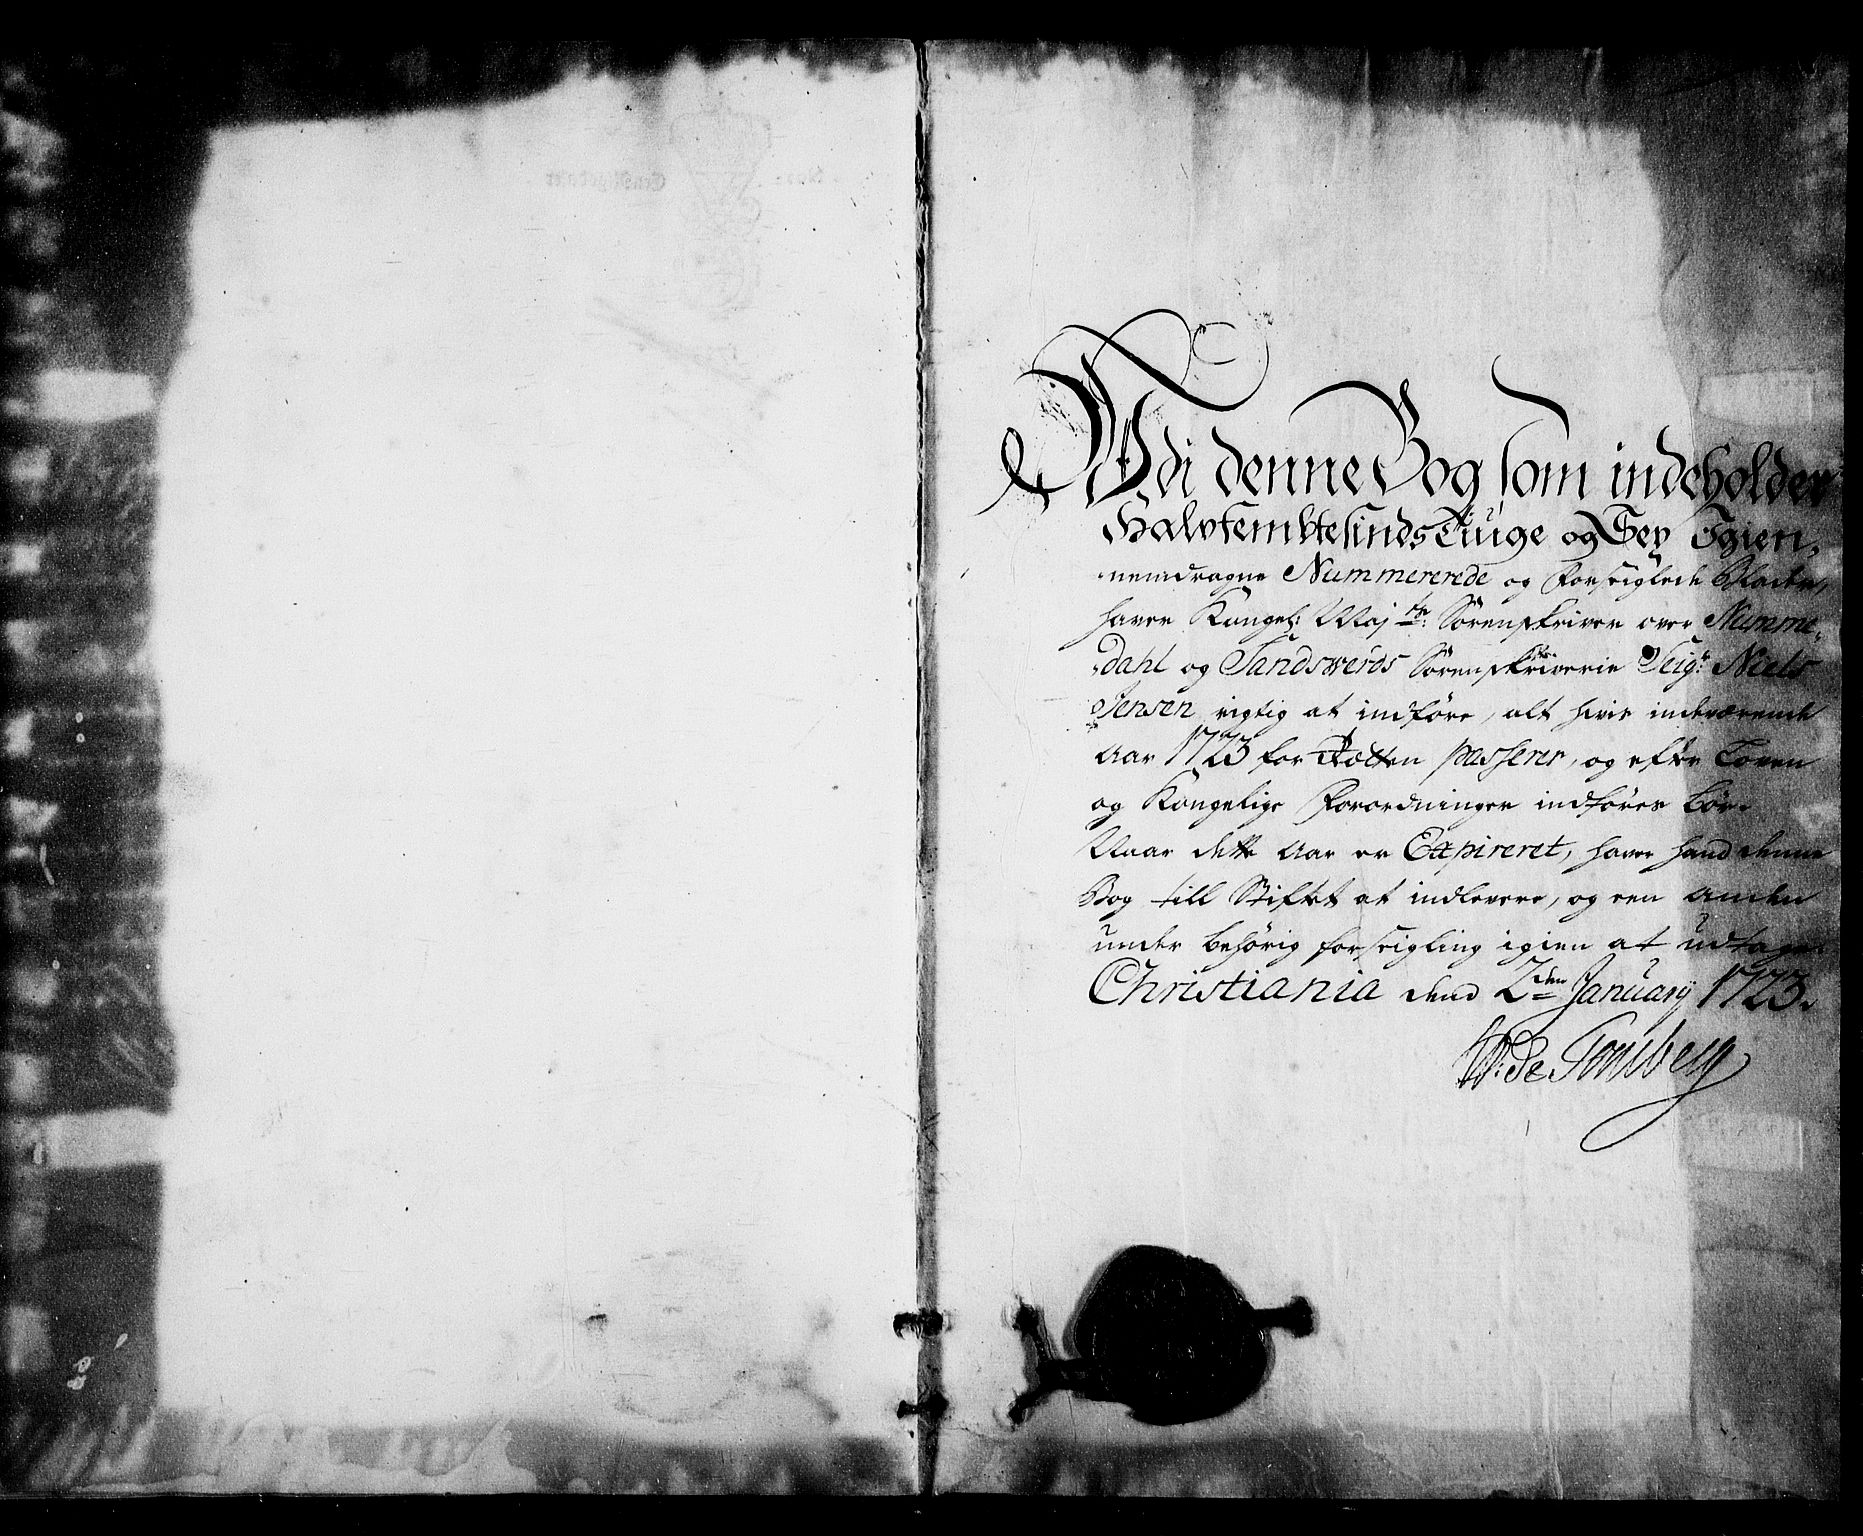 Udi denne Bog som indeholder
Halvfembtesinds Tiuge og Sex Igien,,
,,nemdragne Nummererede og forseiglede Blade,
haver Kongel: Maj:ts: Sörenskriver over Numme,,
,,dahl og Sandswerds Sörenskriverie Seigr: Niels
Jensen rigtig at indföre, alt hvis indeværende
Aar 1723 for Rætten passerer, og efter Loven
og Kongelige Forordninger indföres bör.
Naar dette Aar er Expireret, haver hand denne
Bog till Stiftet at indlevere, og een anden
under behörig forseigling igien at udtage.
Christiania dend 2den January 1723.
W: de Tonsberg